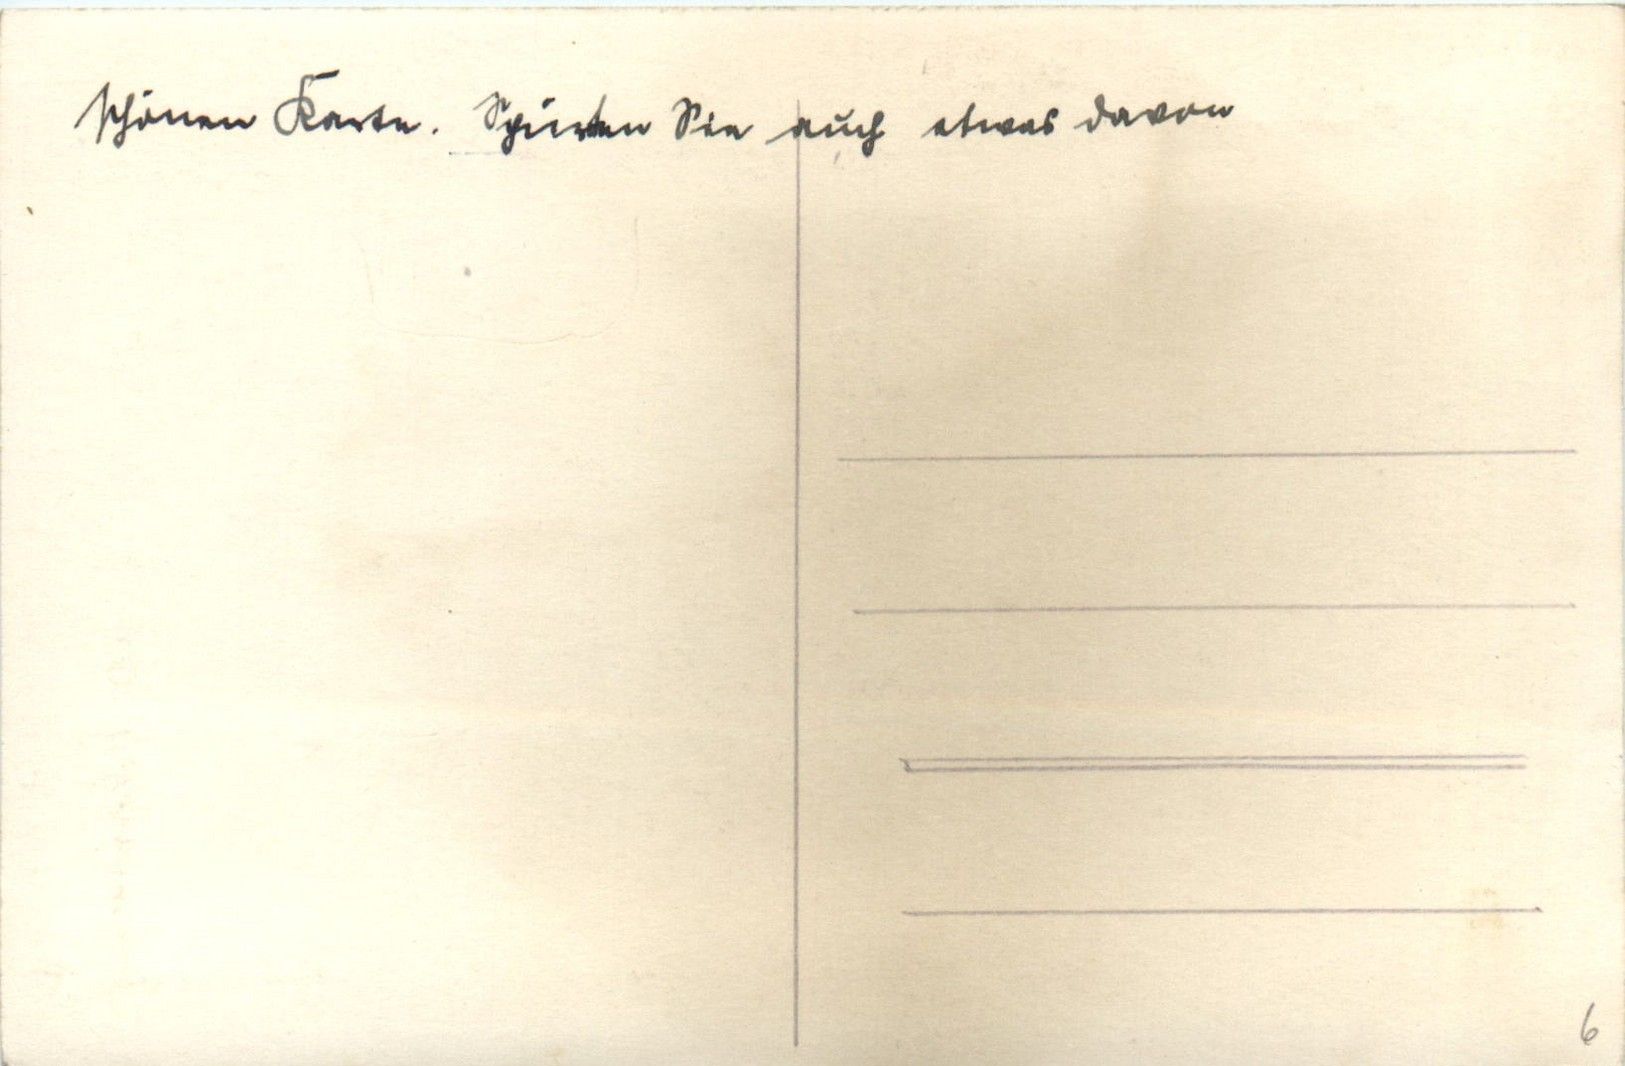 schönen Karte. Spürten Sie auch etwas davon
6